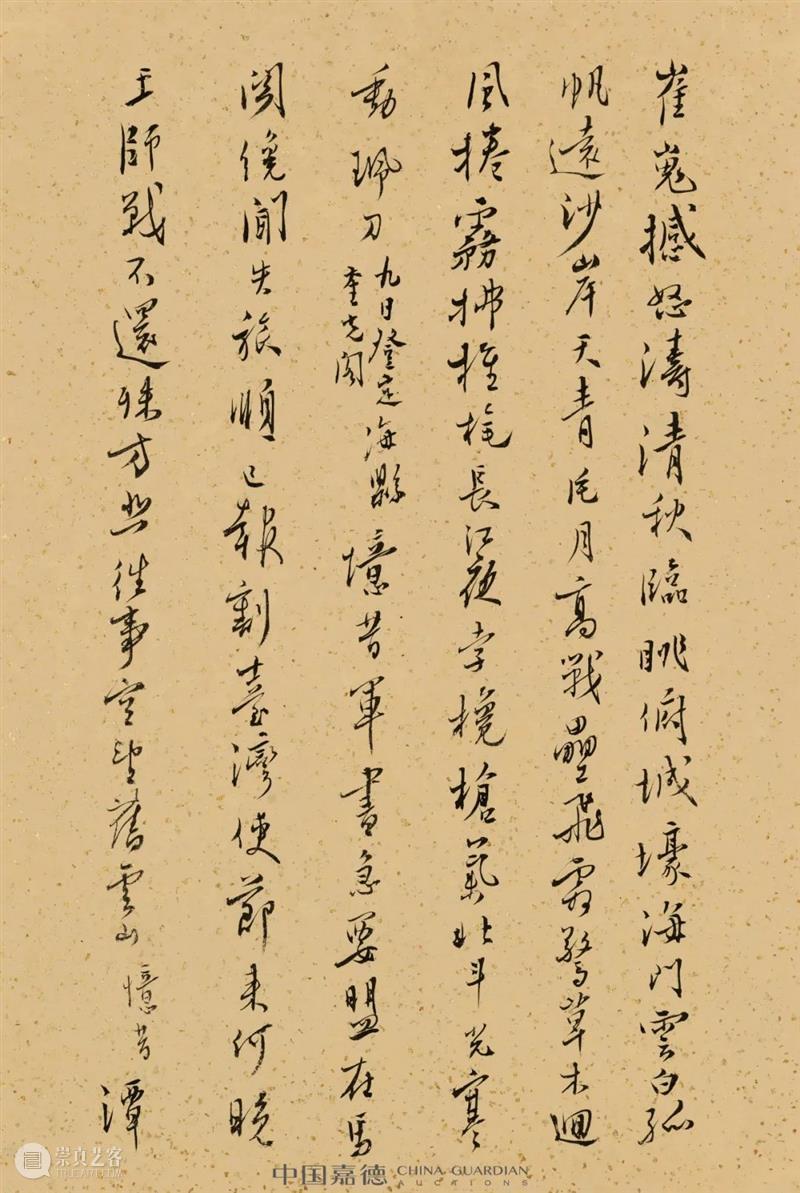 崔嵬撼怒濤清秋臨眺俯城壕海門雲白孤
帆遠沙岸天青片月高戰壘飛霜驚草木迴
風捲霧拂旌旄長江夜孛欃槍氣北斗光寒
動珮刀九日登定海縣奎光閣憶昔軍書急要盟在馬
關纔聞失旅順已報割臺灣使節來何晚
王師戰不還殊方悲往事空望舊雲山憶昔潭
中国嘉德 CHINA GUARDIAN AUCTIONS
崇真艺客
TRUEART.COM